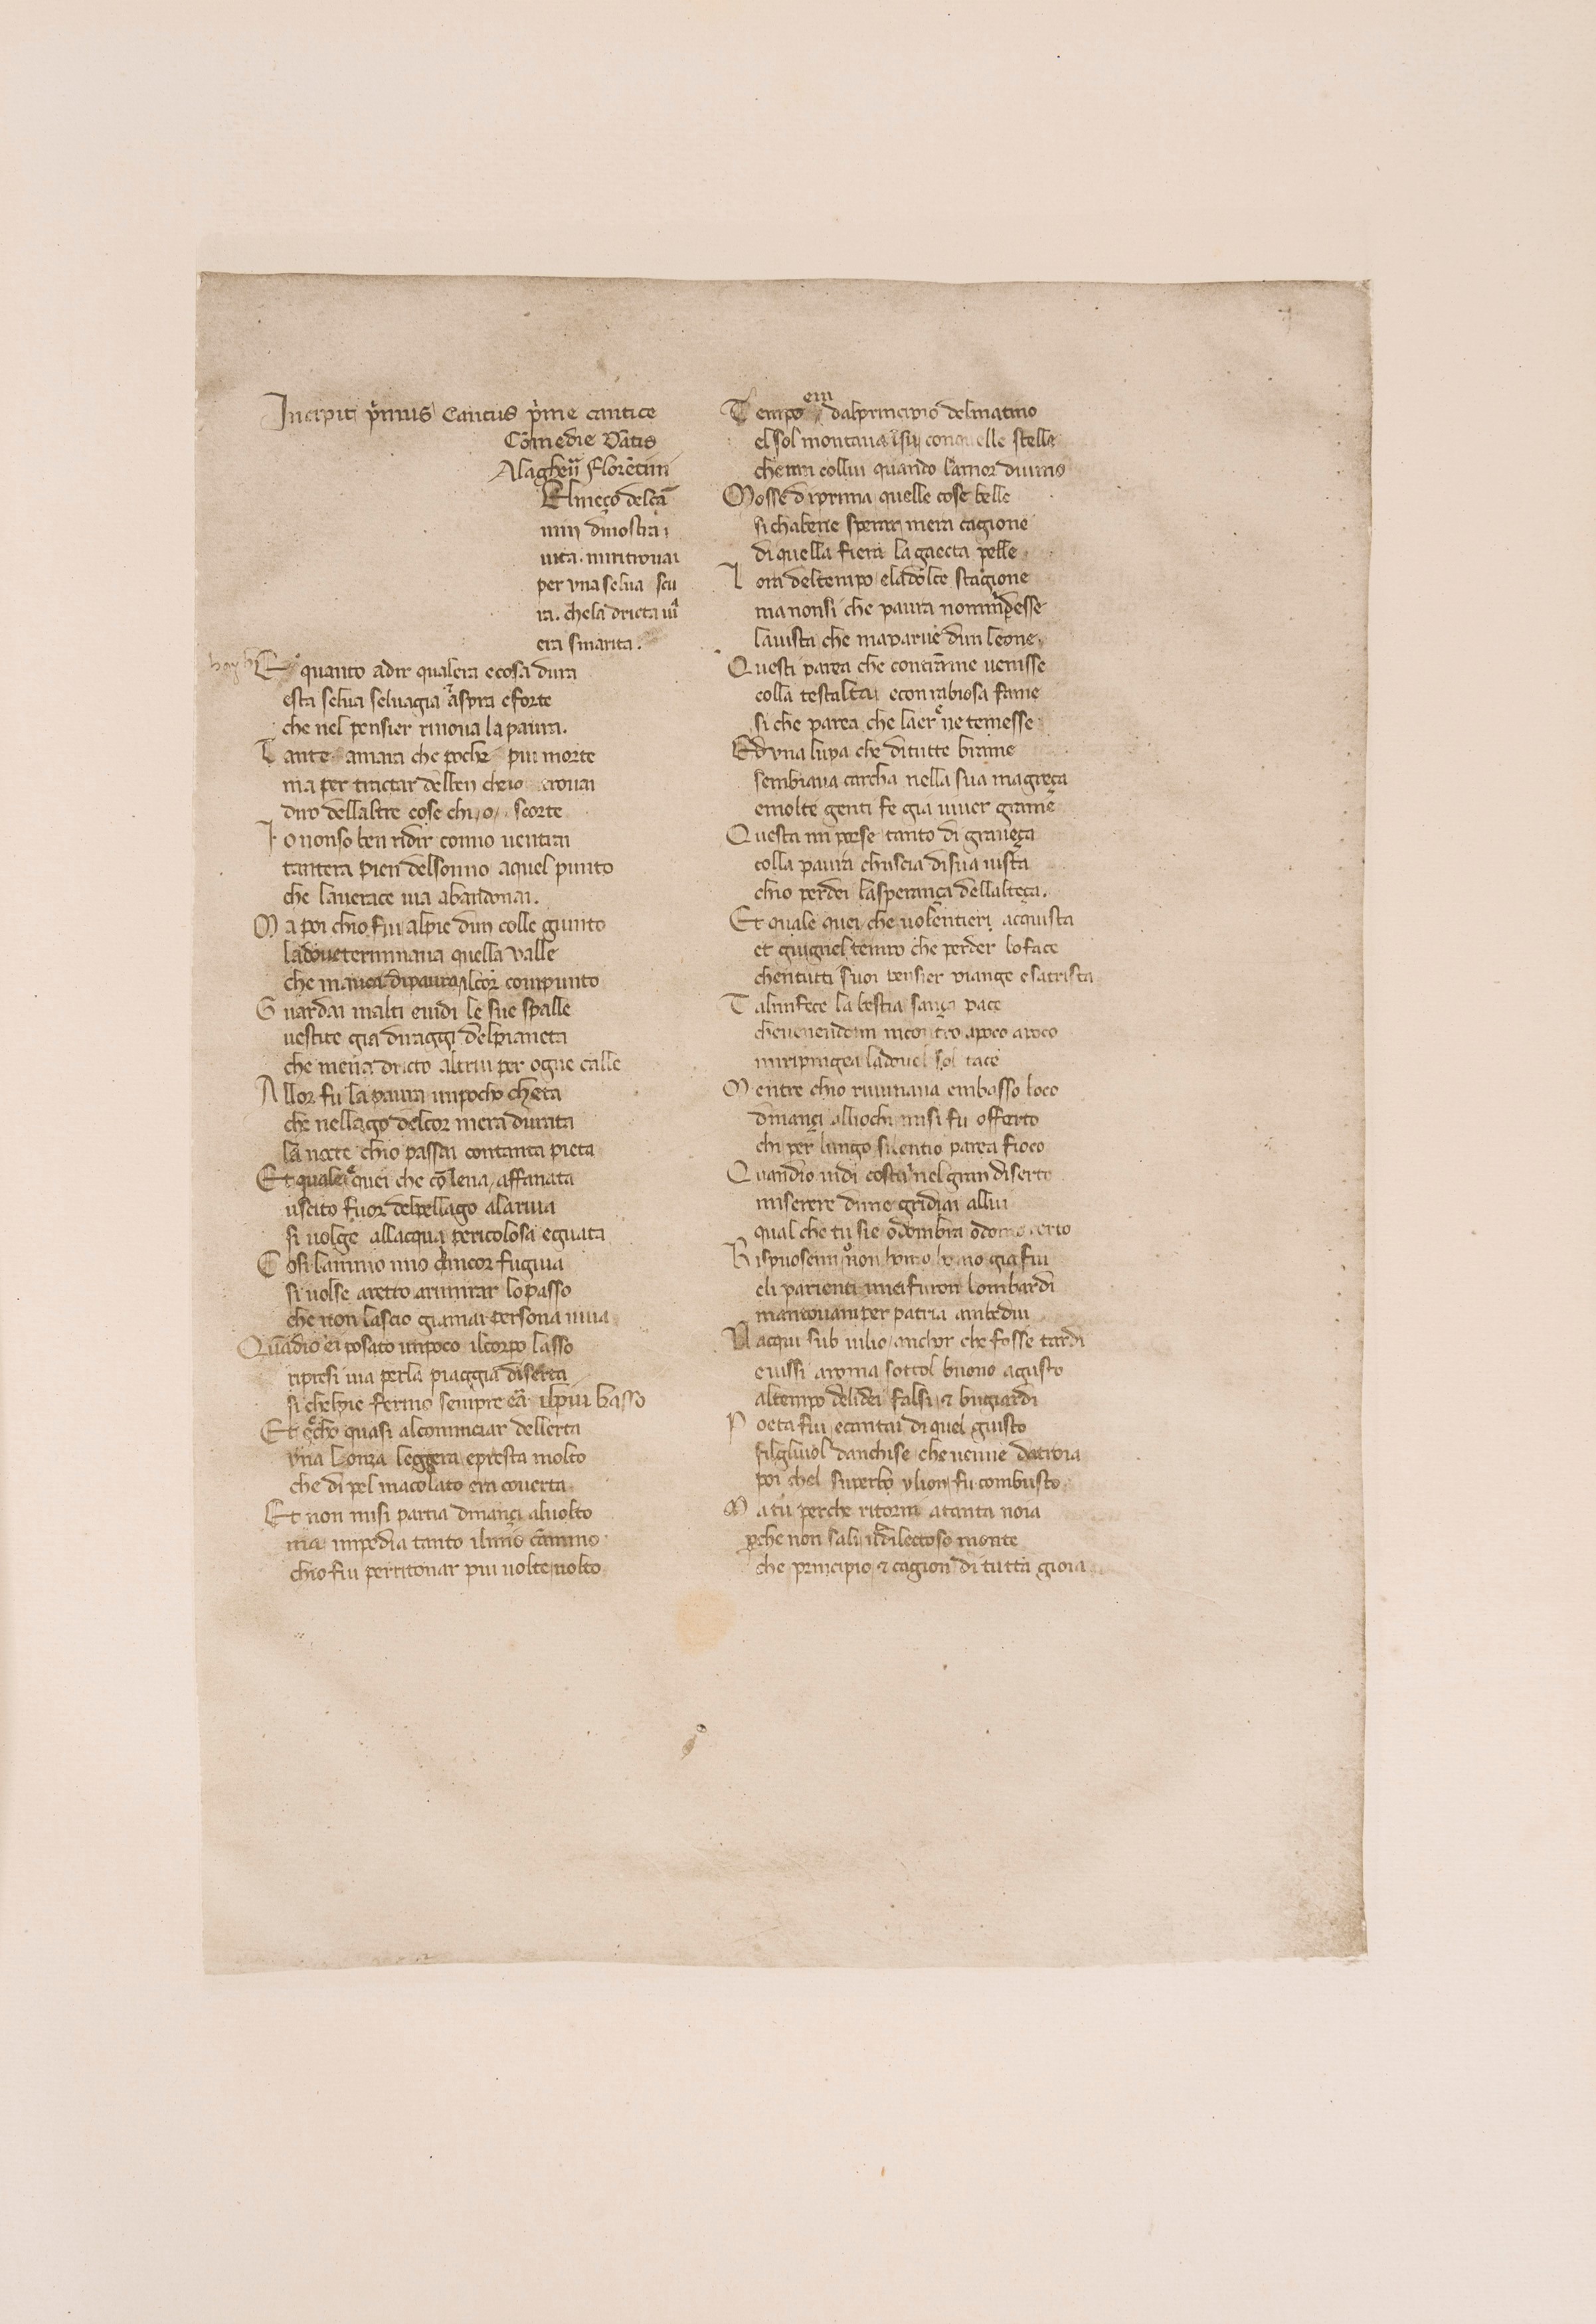 Incipit p̄imus Cantus p̄ime cantice
Comedie Dātis
Alagherij Florētini
El meço del cā
min dinostra
uita. miritrouai
per vna selua scu
ra. chela dricta uia
era smarita.
E quanto adir qualera ecosa dura
esta selua seluagia aspra eforte
che nel pensier rinoua la paura.
Tante amara che poche piu morte
ma per tractar delben cheio trouai
diro dellaltre cose chio scorte
Io nonso ben ridir comio uentrai
tantera pien delsonno aquel punto
che lauerace uia abandonai.
Ma poi chio fui alpie dun colle giunto
ladoue terminaua quella valle
che mauea dipaura ilcor compunto
Guardai inalti euidi le sue spalle
uestite gia diraggi delpianeta
che mena dricto altrui per ogne calle
Allor fu la paura unpocho cheta
che nellago delcor mera durata
la nocte chio passai contanta pieta
Et quale quei che cō lena affanata
uscito fuor delpellago alariua
si uolge allacqua pericolosa eguata
Cosi lanimo mio chancor fugiua
si uolse aretto arimirar lo passo
che non lascio giamai persona uiua
Quādio ei posato unpoco ilcorpo lasso
ripresi uia perla piaggia diserta
si chelpie fermo sempre era ilpiu basso
Et echo quasi alcominciar dellerta
vna Lonza leggera epresta molto
che di pel macolato era couerta
Et non misi partia dinançi aluolto
ma impedia tanto ilmio camino
chio fui perritonar piu uolte uolto
Tempo era dalprincipio delmatino
el sol montaua isu conquelle stelle
cheran collui quando lamor diuino
Mosse diprima quelle cose belle
si chabene sperar mera cagione
di quella fiera la gaecta pelle
Lora deltempo eladolce stagione
ma nonsi che paura nonmi desse
lauista che maparue dun leone
Questi parea che contrame uenisse
colla testalta econ rabiosa fame
si che parea che laer ne temesse
Ed vna lupa che ditutte brame
sembiaua carcha nella sua magreça
emolte genti fe gia uiuer grame
Questa mi porse tanto di graueça
colla paura chuscia disua uista
chio perdei lasperança dellalteça.
Et quale quei che uolentieri acquista
et giugnel tempo che perder loface
chentutti suoi pensier piange esatrista
Talmifece la bestia sança pace
cheuenendomi incontro apoco apoco
miripingea ladouel sol tace
Mentre chio ruuinaua embasso loco
dinançi alliochi misi fu offerto
chi per lungo silentio parea fioco
Quandio uidi costui nel gran diserto
miserere dime gridai allui
qual che tu sie odombra odomo certo
Rispuosemi non homo homo gia fui
eli parienti miei furon lombardi
mantouani per patria ambedui
Nacqui sub iulio anchor che fosse tardi
euissi aroma sottol buono agusto
altempo delidei falsi & bugiardi
Poeta fui ecantai di quel giusto
filgliuol danchise che uenne datroia
poi chel superbo ylion fu combusto
Ma tu perche ritorni atanta noia
ꝑche non sali ildilectoso monte
che principio & cagion di tutta gioia